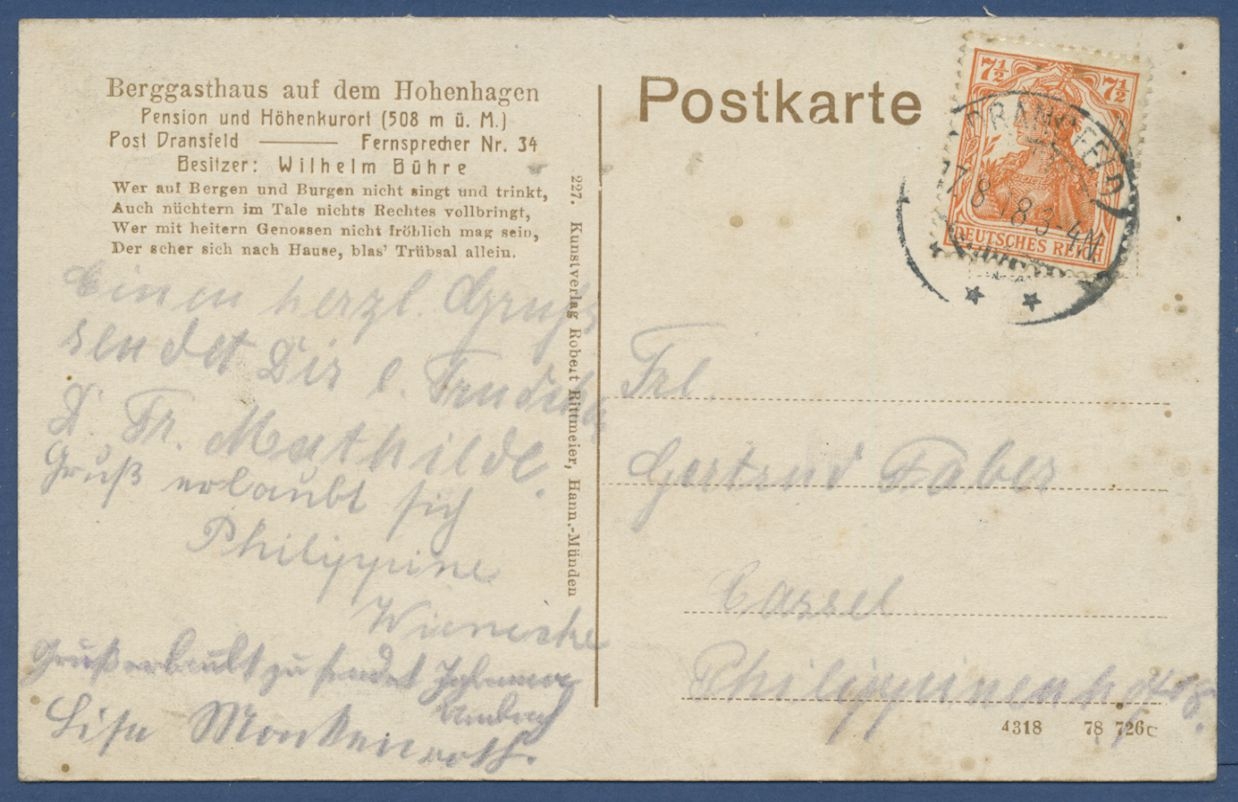 Berggasthaus auf dem Hohenhagen
Pension und Höhenkurort (508 m ü. M.)
Post Dransfeld ——— Fernsprecher Nr. 34
Besitzer: Wilhelm Bühre
Wer auf Bergen und Burgen nicht singt und trinkt,
Auch nüchtern im Tale nichts Rechtes vollbringt,
Wer mit heitern Genossen nicht fröhlich mag sein,
Der scher sich nach Hause, blas' Trübsal allein.
Einen herzl. Gruß
sendet Dir l. Trudchen
D. Fr. Mathilde.
Gruß erlaubt sich
Philippine
Wienecke
Gruß erlaubt zu sendet
Lisa Monkenroth.
227. Kunstverlag Robert Rittmeier, Hann.-Münden
Postkarte
7½ 7½
DEUTSCHES REICH
DRANSFELD
17.8.18.3-4N
Frl.
Gertrud Faber
Cassel
Philippinenhof
4318 78 726c